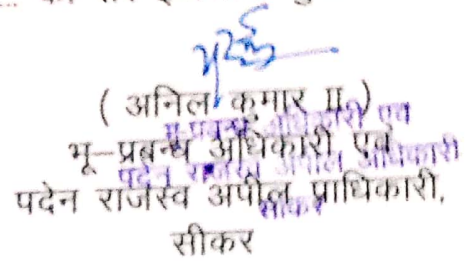 ( अनिल कुमार II )
भू–प्रबन्ध अधिकारी एवं
पदेन राजस्व अपील प्राधिकारी,
सीकर
भू-प्रबन्ध अधिकारी एवं
पदेन राजस्व अपील अधिकारी
सीकर